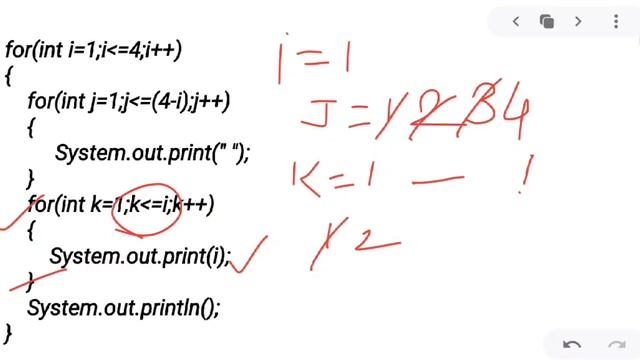 for(int i=1;i<=4;i++)
{
for(int j=1;j<=(4-i);j++)
{
System.out.print(" ");
}
for(int k=1;k<=i;k++)
{
System.out.print(i);
}
System.out.println();
}
i = 1
J = 1 2 3 4
K = 1 — 1
1 2